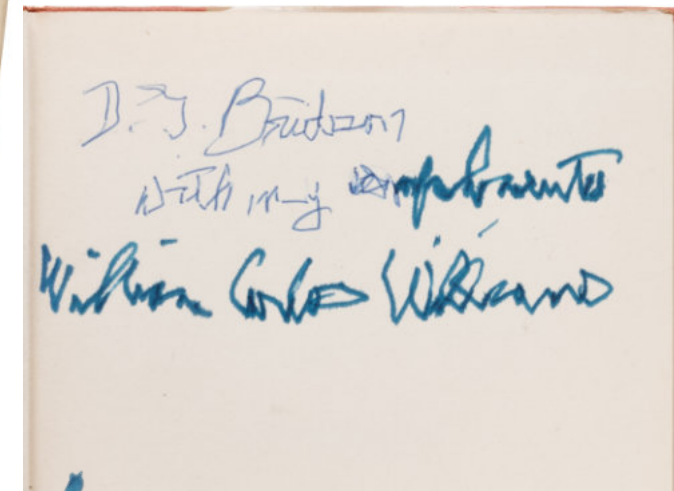 D. G. Bridson
with my compliments
William Carlos Williams